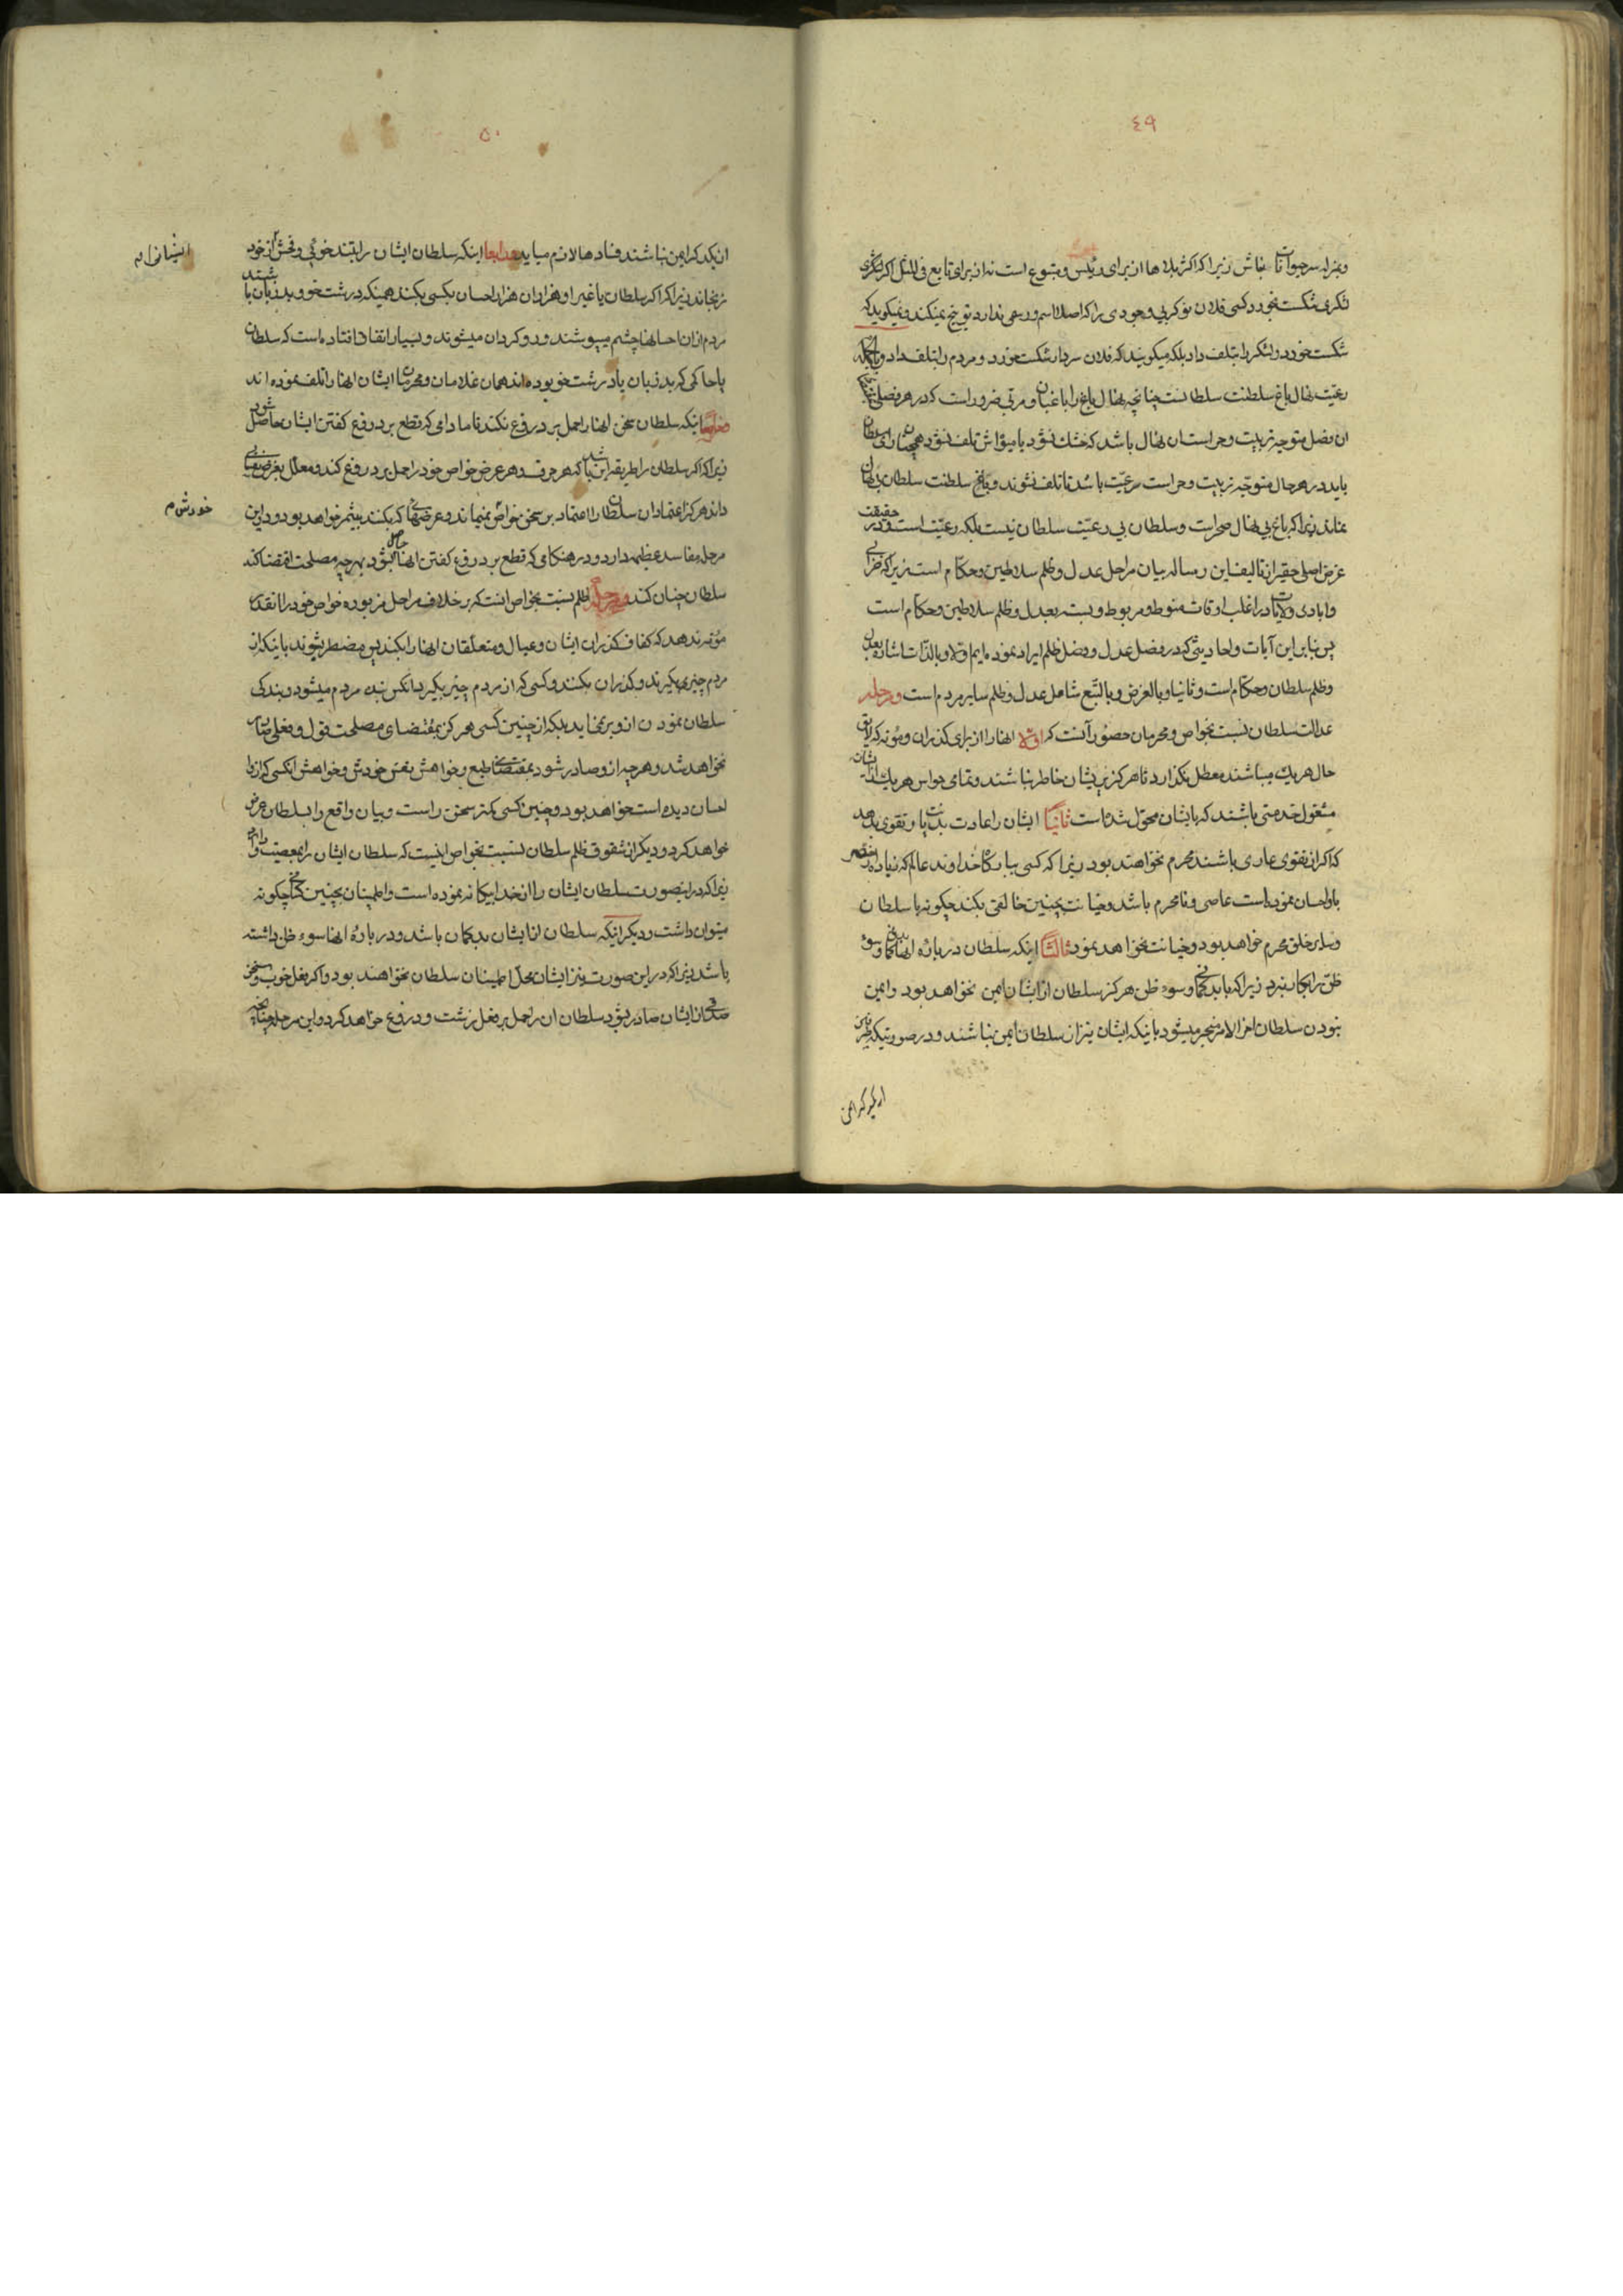 ٤٩
و بمنزله سر حیوانات مباش زیرا که اکثر بلاها از برای رئیس و متبوع است نه از برای تابع فی المثل اگر لشکری
شکست بخورد کسی فلان نوکر بی وجودی را که اصلا اسم و رسمی ندارد توبیخ نمیکند و نمیگوید که
شکست خورد و لشکر را بتلف داد بلکه میگویند که فلان سردار شکست خورد و مردم را بتلف داد و بالجمله
رعیت نهال باغ سلطنت سلطانست چنانچه نهال باغ را باغبان و مربی ضرور است که در هر فصلی
ان فصل متوجه تربیت و حراست ان نهال باشد که خشك نشود یا میوه اش تلف نشود همچنان سلطان
باید در هر حال متوجه تربیت و حراست رعیت باشد تا تلف نشوند و باغ سلطنت سلطان بی نهال
نماند زیرا که باغ بی نهال صحراست و سلطان بی رعیت سلطان نیست بلکه رعیت است و در حقیقت
غرض اصلی حقیر از تالیف این رساله بیان مراحل عدل و ظلم سلاطین و حکام است زیرا که خرابی
و ابادی ولایات در اغلب اوقات منوط و مربوط و بسته بعدل و ظلم سلاطین و حکام است
پس بنابر این آیات و احادیثی که در فضل عدل و فضل ظلم ایراد نموده ایم اولا و بالذات اشاره بعدل
و ظلم سلطان و حکام است و ثانیا و بالعرض و بالتبع شامل عدل و ظلم سایر مردم است مرحله
عدالت سلطان نسبت بخواص و محرمان حضور آنست که اولا انها را از برای گذران و مؤنه که لایق
حال هریك میباشند معطل نگذارد تا هرگز پریشان خاطر نباشند و تمامی حواس هریك از ایشان
مشغول خدمتی باشند که بایشان محول شده است ثانیا ایشان را عادت بدیانت و تقوی بدهد
که اگر از تقوی عاری باشند محرم نخواهند بود زیرا که کسی بدرگاه خداوند عالم که زیاده
باو احسان نموده است عاصی و نامحرم باشد و خیانت بچنین خالقی بکند چگونه با سلطان
و سایر خلق محرم خواهد بود و خیانت نخواهد نمود ثالثا اینکه سلطان در باره انها بدگمانی و سوء
ظن را بکار نبرد زیرا که با بدگمانی و سوء ظن هرگز سلطان از ایشان ایمن نخواهد بود و ایمن
نبودن سلطان اخر الامر منجر میشود باینکه ایشان نیز از سلطان ایمن نباشند و در صورتیکه طرفین
از یکدیگر ایمن
٥٠
از یکدیگر ایمن نباشند فسادها لازم میاید رابعا اینکه سلطان ایشان را بتندخوئی و فحش از خود
نرنجاند زیرا که اگر سلطان یا غیر او هزاران هزار احسان بکسی بکنند همینکه درشت خو و بدزبان باشند
مردم از ان احسانها چشم میپوشند و رو گردان میشوند و بسیار اتفاق افتاده است که سلطان
یا حاکمی که بدزبان یا درشت خو بوده اند همان غلامان و محرمان ایشان انها را تلف نموده اند
اینکه سلطان سخن انها را حمل بر دروغ نکند تا مادامی که قطع بر دروغ گفتن ایشان حاصل شود
زیرا که اگر سلطان را طریقه این باشد که هر حرف و هر عرض خواص خود را حمل بر دروغ کند و معلل بغرض نفسانی
داند هرگز اعتماد ان سلطان را اعتماد بر سخن خواص نمیماند و عرضهائی که بکنند بیثمر خواهد بود و در این
مرحله مفاسد عظیمه دارد و در هنگامی که قطع بر دروغ گفتن انها حاصل شود بهر چه مصلحت اقتضا کند
سلطان چنان کند مرحله ظلم نسبت بخواص انست که بر خلاف مراحل مزبوره خواص خود را انقدر
مؤنه ندهد که کفاف گذران ایشان و عیال و متعلقان انها را بکند پس مضطر میشوند باینکه از
مردم چیزی بگیرند و گذران بکنند و کسی که از مردم چیز بگیرد انکس بنده مردم میشود و بندگی
سلطان نمودن از او بر نمیاید بلکه از چنین کسی هرگز بمقتضای مصلحت قول و فعلی صادر
نخواهد شد و هر چه از او صادر شود بمقتضای طبع و خواهش نفس خودش و خواهش انکسی که از او
احسان دیده است خواهد بود و چنین کسی کمتر سخن راست و بیان واقع را بسلطان عرض
خواهد کرد و دیگر از شقوق ظلم سلطان نسبت بخواص اینست که سلطان ایشان را بمعصیت وادارد
زیرا که در اینصورت سلطان ایشان را از خدا بیگانه نموده است و اطمینان بچنین کسانی چگونه
میتوان داشت و دیگر اینکه سلطان از ایشان بدگمان باشد و در باره انها سوء ظن داشته
باشد زیرا که در این صورت نیز ایشان محل اطمینان سلطان نخواهند بود و اگر فعل خوب و سخن
صدقی از ایشان صادر شود سلطان ان را حمل بر فعل زشت و دروغ خواهد کرد و این مرحله
خودش م